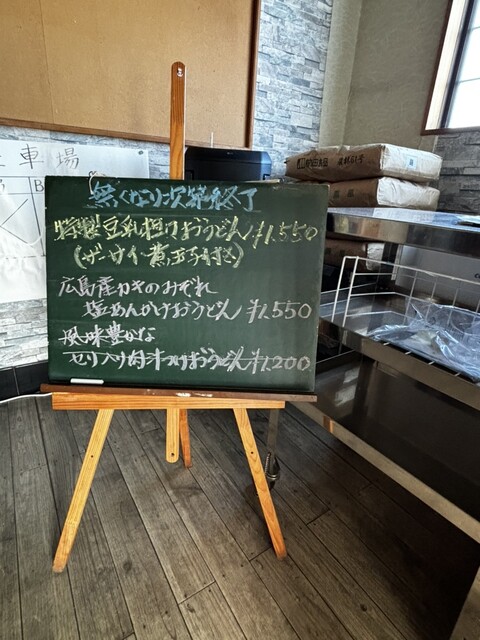 車場
B
無くなり次第終了
特製豆乳担々おうどん ¥1,550
(ザーサイ・煮玉子付き)
広島産カキのみぞれ
塩あんかけおうどん ¥1,550
風味豊かな
セリ入り肉汁つけおうどん ¥1,200